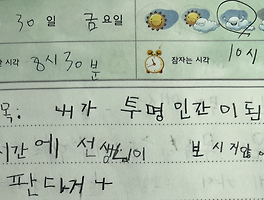 30 일 금요일
시각 8시 30분 잠자는 시각 10시
목: 내가 투명인간이 된
시간에 선생님이 보시거
판다거나